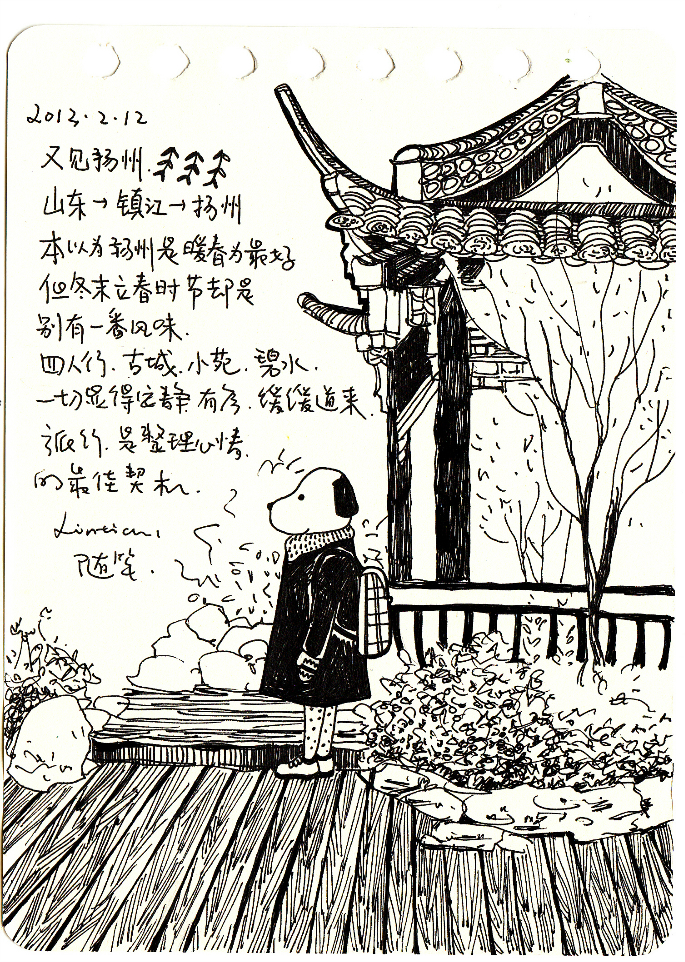 2013.2.12
又见扬州.
山东→镇江→扬州
本以为扬州是暖春为最好
但冬末立春时节却是
别有一番风味.
四人行.古城.小苑.碧水.
一切显得安静有序.缓缓道来.
旅行.是整理心情.
的最佳契机.
随笔.